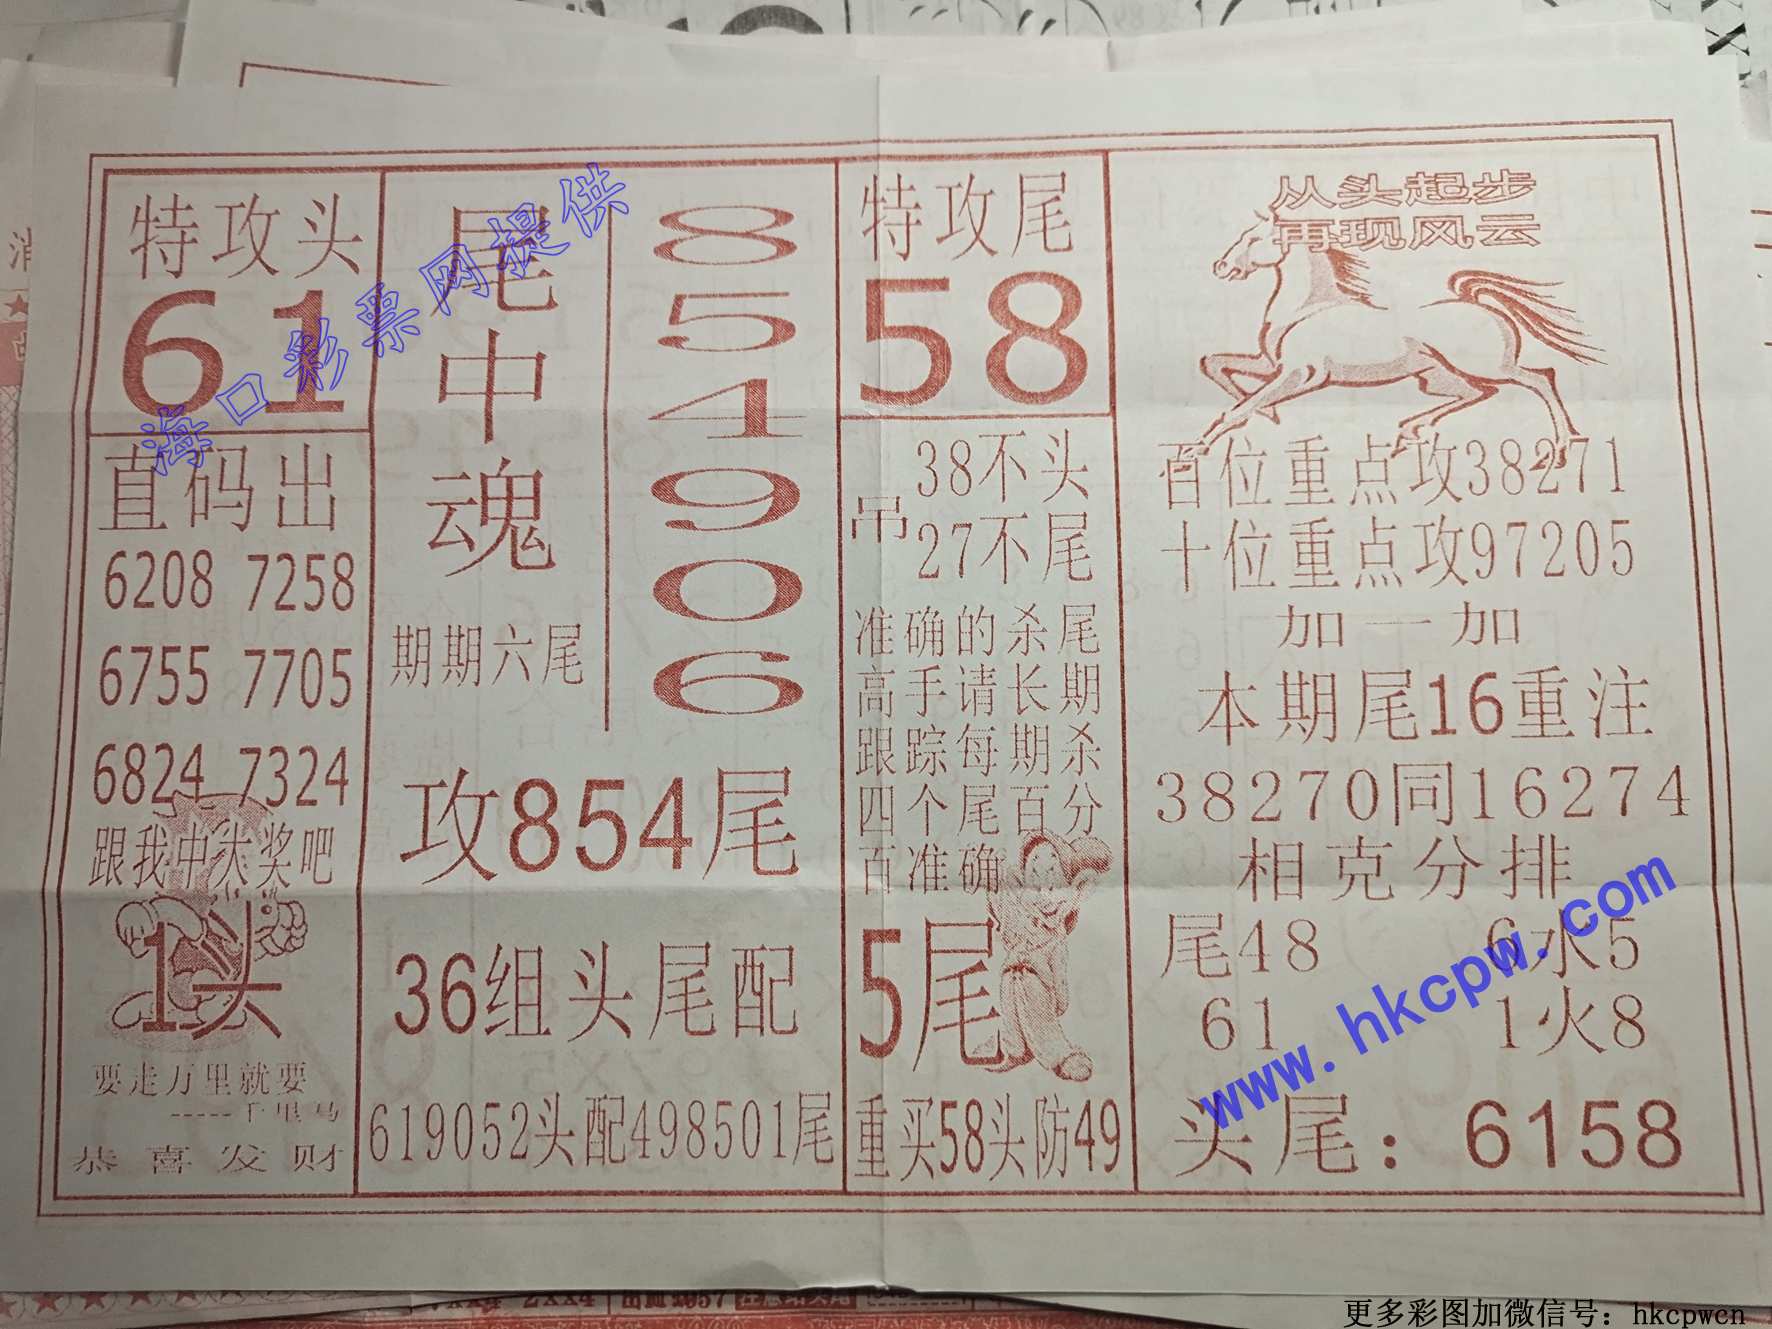 特攻头
61
直码出
6208 7258
6755 7705
6824 7324
跟我中大奖吧
1头
要走万里就要
-----千里马
恭喜发财
尾中魂
期期六尾
8
5
4
9
0
6
攻854尾
36组头尾配
619052头配498501尾
特攻尾
58
吊
38不头
27不尾
准确的杀尾
高手请长期
跟踪每期杀
四个尾百分
百准确
5尾
重买58头防49
从头起步
再现风云
百位重点攻38271
十位重点攻97205
加一加
本期尾16重注
38270同16274
相克分排
尾48 6水5
61 1火8
头尾：6158
海口彩票网提供
www.hkcpw.com
更多彩图加微信号：hkcpwcn